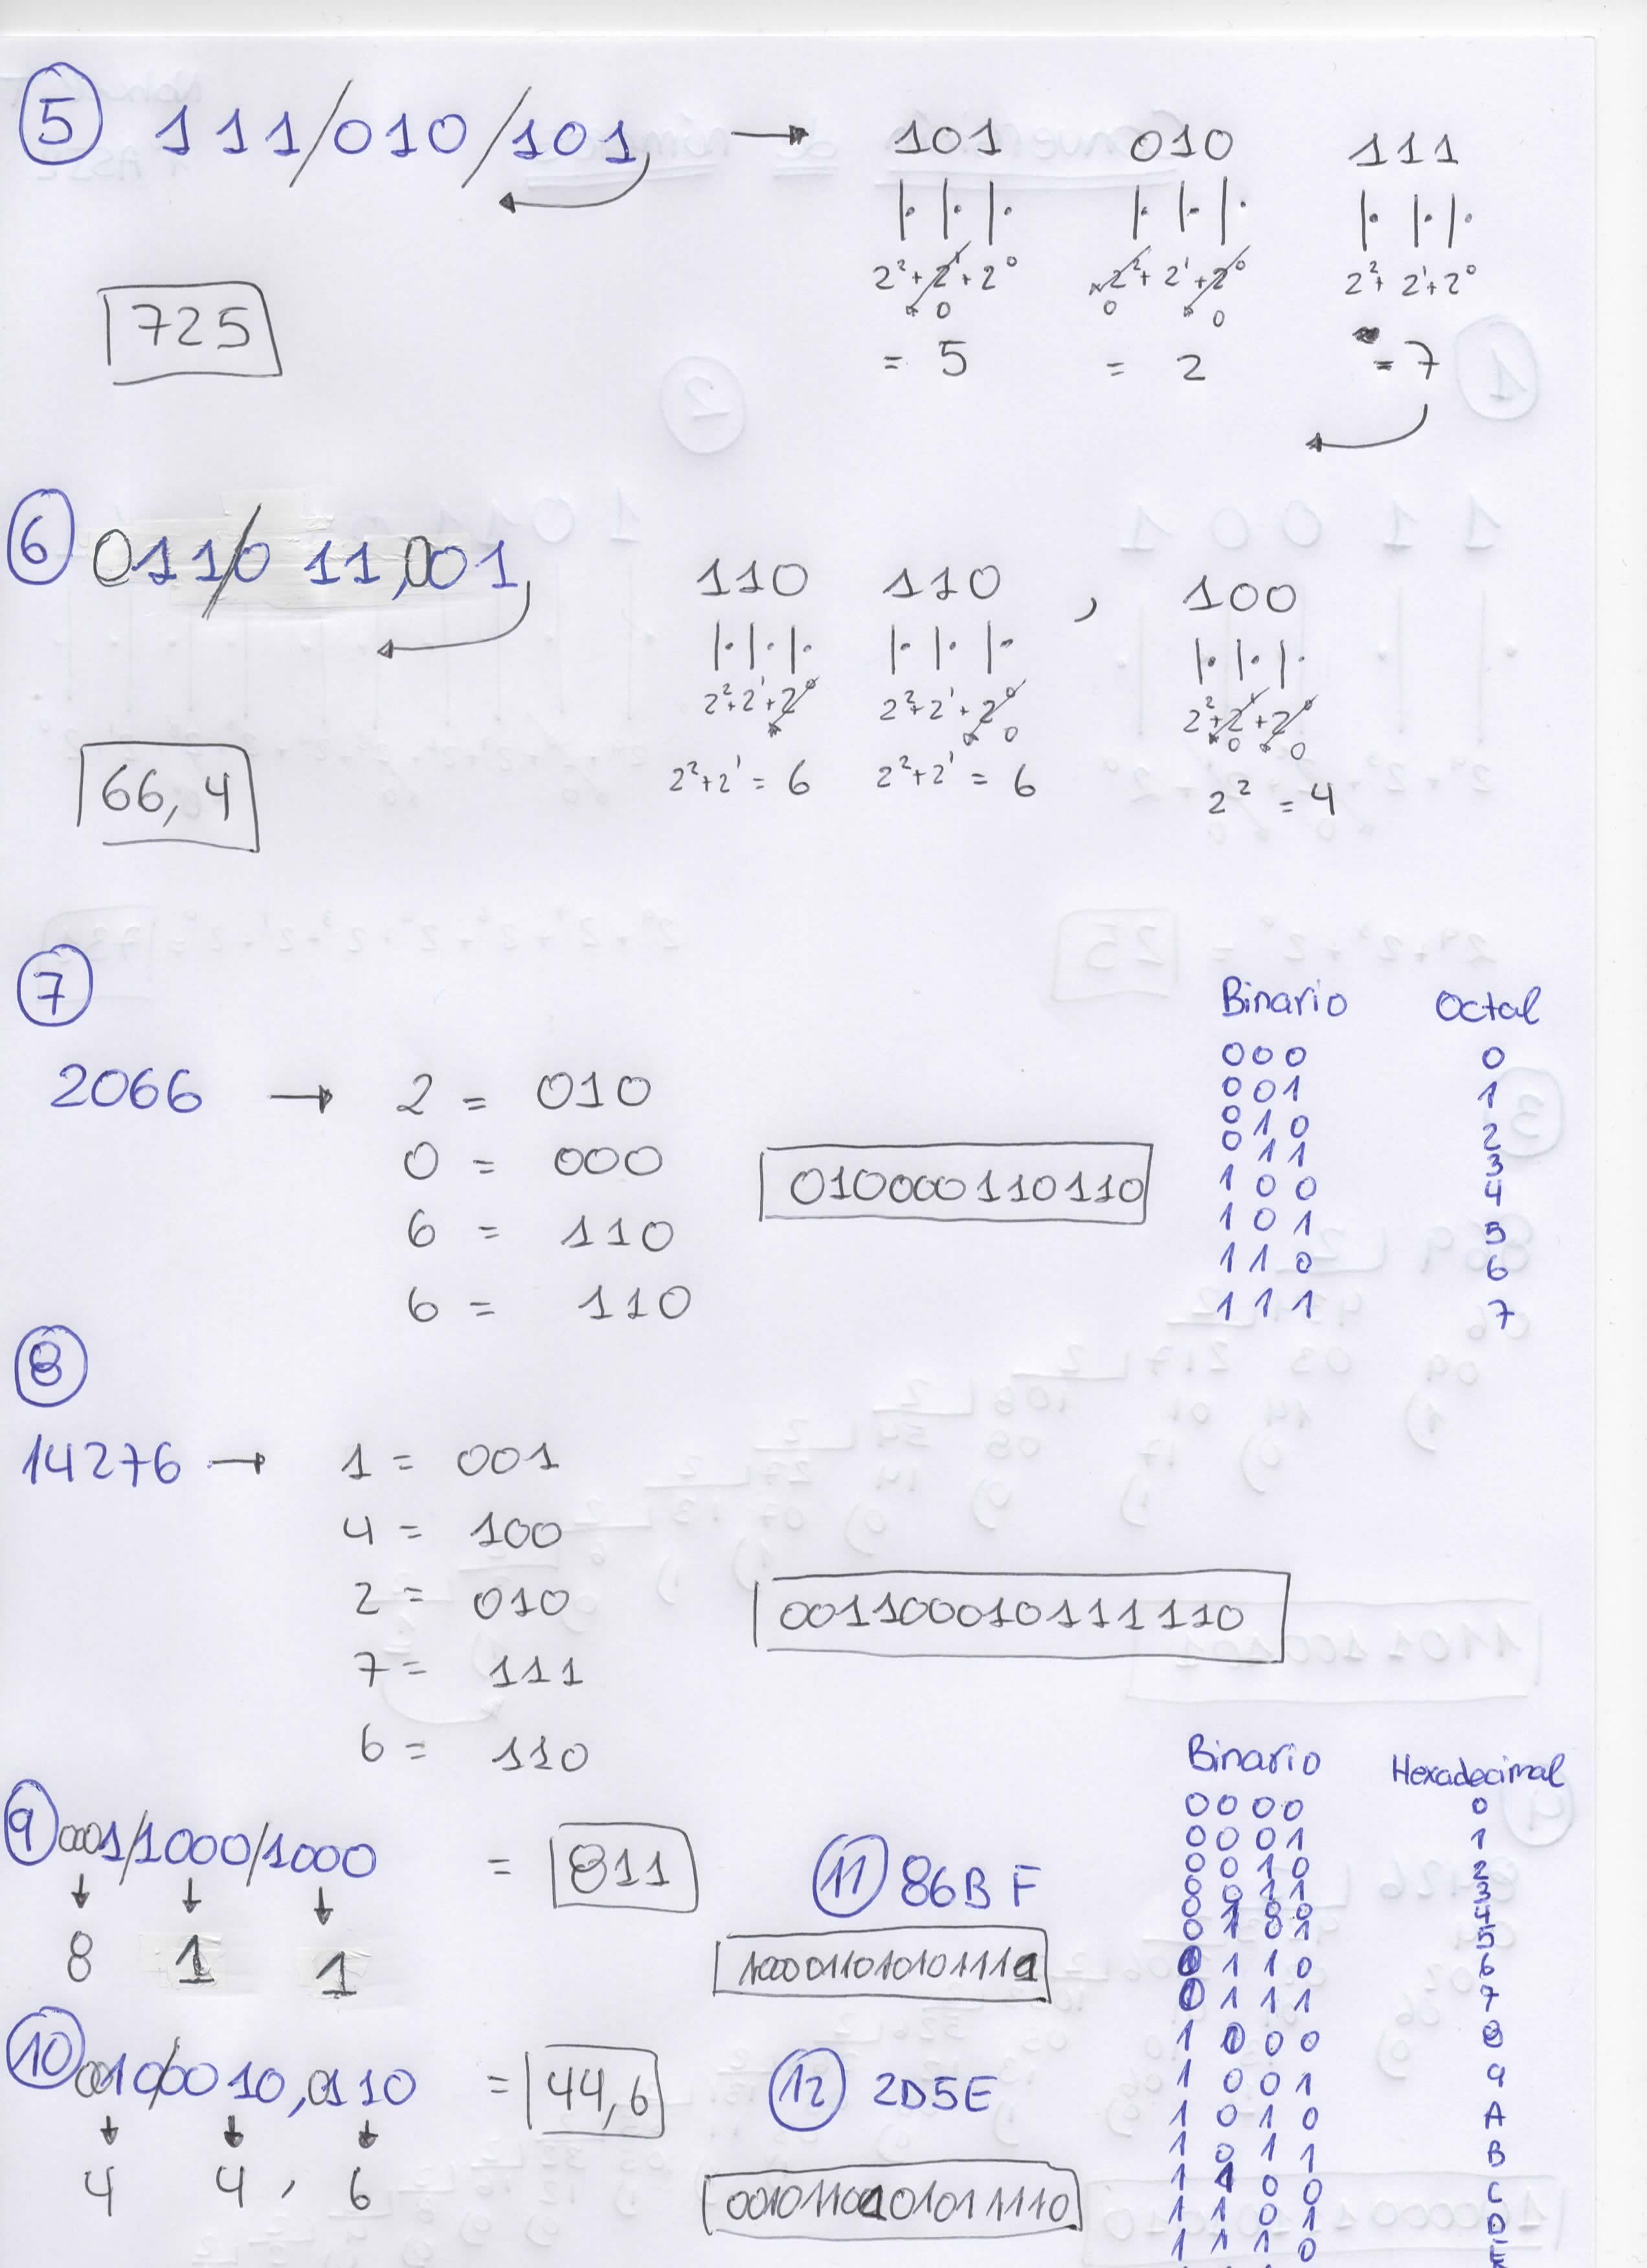 5 111/010/101 → 101 010 111
2²+2¹+2⁰ 2²+2¹+2⁰ 2²+2¹+2⁰
0 0 0
725
= 5 = 2 = 7
6 0110/11,001 110 110 , 100
2²+2¹+2⁰ 2²+2¹+2⁰ 2²+2¹+2⁰
0 0 0
66,4
2²+2¹ = 6 2²+2¹ = 6 2² = 4
7
2066 → 2 = 010
0 = 000
6 = 110
6 = 110
010000110110
Binario Octal
000 0
001 1
010 2
011 3
100 4
101 5
110 6
111 7
8
14276 → 1 = 001
4 = 100
2 = 010
7 = 111
6 = 110
001100010111110
9 0001/1000/1000 = 811
8 1 1
10 0010/0010,0110 = 44,6
4 4 , 6
11 86BF
12 2D5E
Binario Hexadecimal
0000 0
0001 1
0010 2
0011 3
0100 4
0101 5
0110 6
0111 7
1000 8
1001 9
1010 A
1011 B
1100 C
1101 D
1110 E